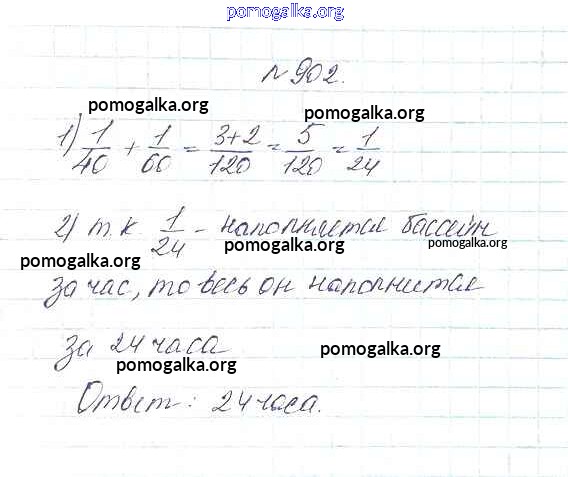 pomogalka.org
№ 902.
pomogalka.org pomogalka.org
1) 1/40 + 1/60 = 3+2/120 = 5/120 = 1/24
2) т.к. 1/24 - наполняется бассейн
pomogalka.org pomogalka.org pomogalka.org
за час, то весь он наполнится
за 24 часа
pomogalka.org pomogalka.org
Ответ: 24 часа.